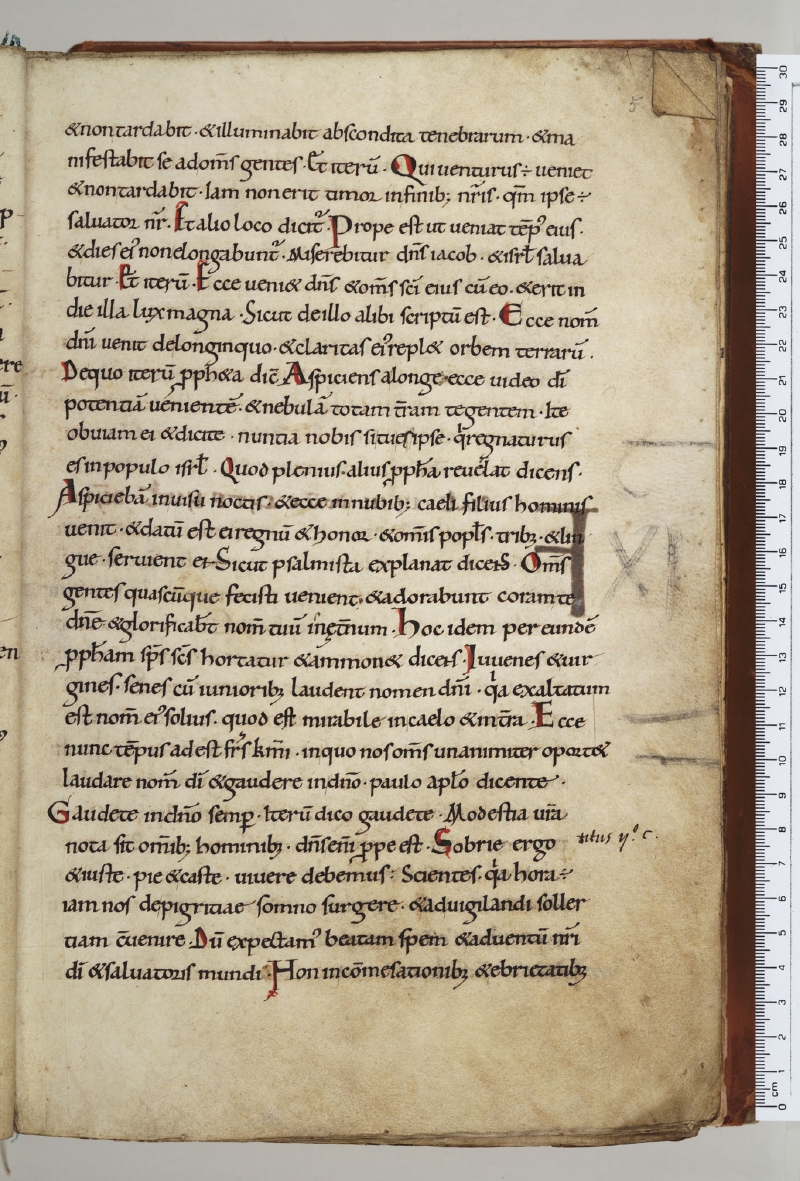 5
&nontardabit · &illuminabit abscondita tenebrarum · &ma
nifestabit se adom̅s gentes · Et iterū · Qui uenturus ÷ ueniet
&nontardabit · Iam nonerit timor infinib; nr̅is · qm̅ ipse ÷
saluator nr̅ · Et alio loco dicit᷒ · Prope est ut ueniat tēp᷒ eius ·
&dies ei᷒ nonelongabunt᷒ · Miserebitur dn̅s iacob · &isrl̅ salua
bitur · Et iterū · Ecce ueni& dn̅s &om̅s sc̅i eius cū eo · &erit in
die illa lux magna · Sicut deillo alibi scriptū est · Ecce nom̅
dn̅i uenit delonginquo · &claritas ei᷒ repl& orbem terrarū .
Dequo iterū ꝓph&a dic̅ Aspiciens alonge ecce uideo di̅
potentiā uenientē · &nebulā totam t̅ram tegentem · Ite
obuiam ei &dicite · nuntia nobis situesipse · q̍regnaturus
es inpopulo isrl̅ · Quod plenius · alius ꝓph̅a reuelat dicens ·
Aspiciebā inuisu noctis · &ecce innubib; caeli filius hominis
uenit · &datū est ei regnū & honor · &om̅is popl̅s · trib; · &lin
gue · seruient ei · Sicut psalmista explanat dicens · Om̅s
gentes quascūque fecisti uenient · &adorabunt coram te
dn̅e · &glorificab̅t nom̅ tuū inęt̅num · Hoc idem per eundē
ꝓph̅am sp̅s sc̅s hortatur &ammon& dicens · Iuuenes &uir
gines · senes cū iuniorib; laudent nomen dn̅i · q̍a exaltatum
est nom̅ ei᷒ solius · quod est mirabile incaelo &int̅ra · Ecce
nunc tēpus adest fr̅s km̅i · inquo nos om̅s unanimiter oport&
laudare nom̅ di̅ &gaudere indn̅o · paulo apl̅o dicente ·
Gaudete indn̅o semꝑ · Iterū dico gaudete · Modestia ur̅a
nota sit om̅ib; hominib; · dn̅s eni̅ ꝓpe est · Sobrie ergo
titus ij° c .
&iuste · pie &caste · uiuere debemus · Scientes · q̍a hora ÷
iam nos depigritiae somno surgere · &aduigilandi soller
tiam c̅uenire · Dū expectam᷒ beatam spem &aduentū nr̅i
di̅ &saluatoris mundi · Non incōmesationib; &ebrietatib;
XI